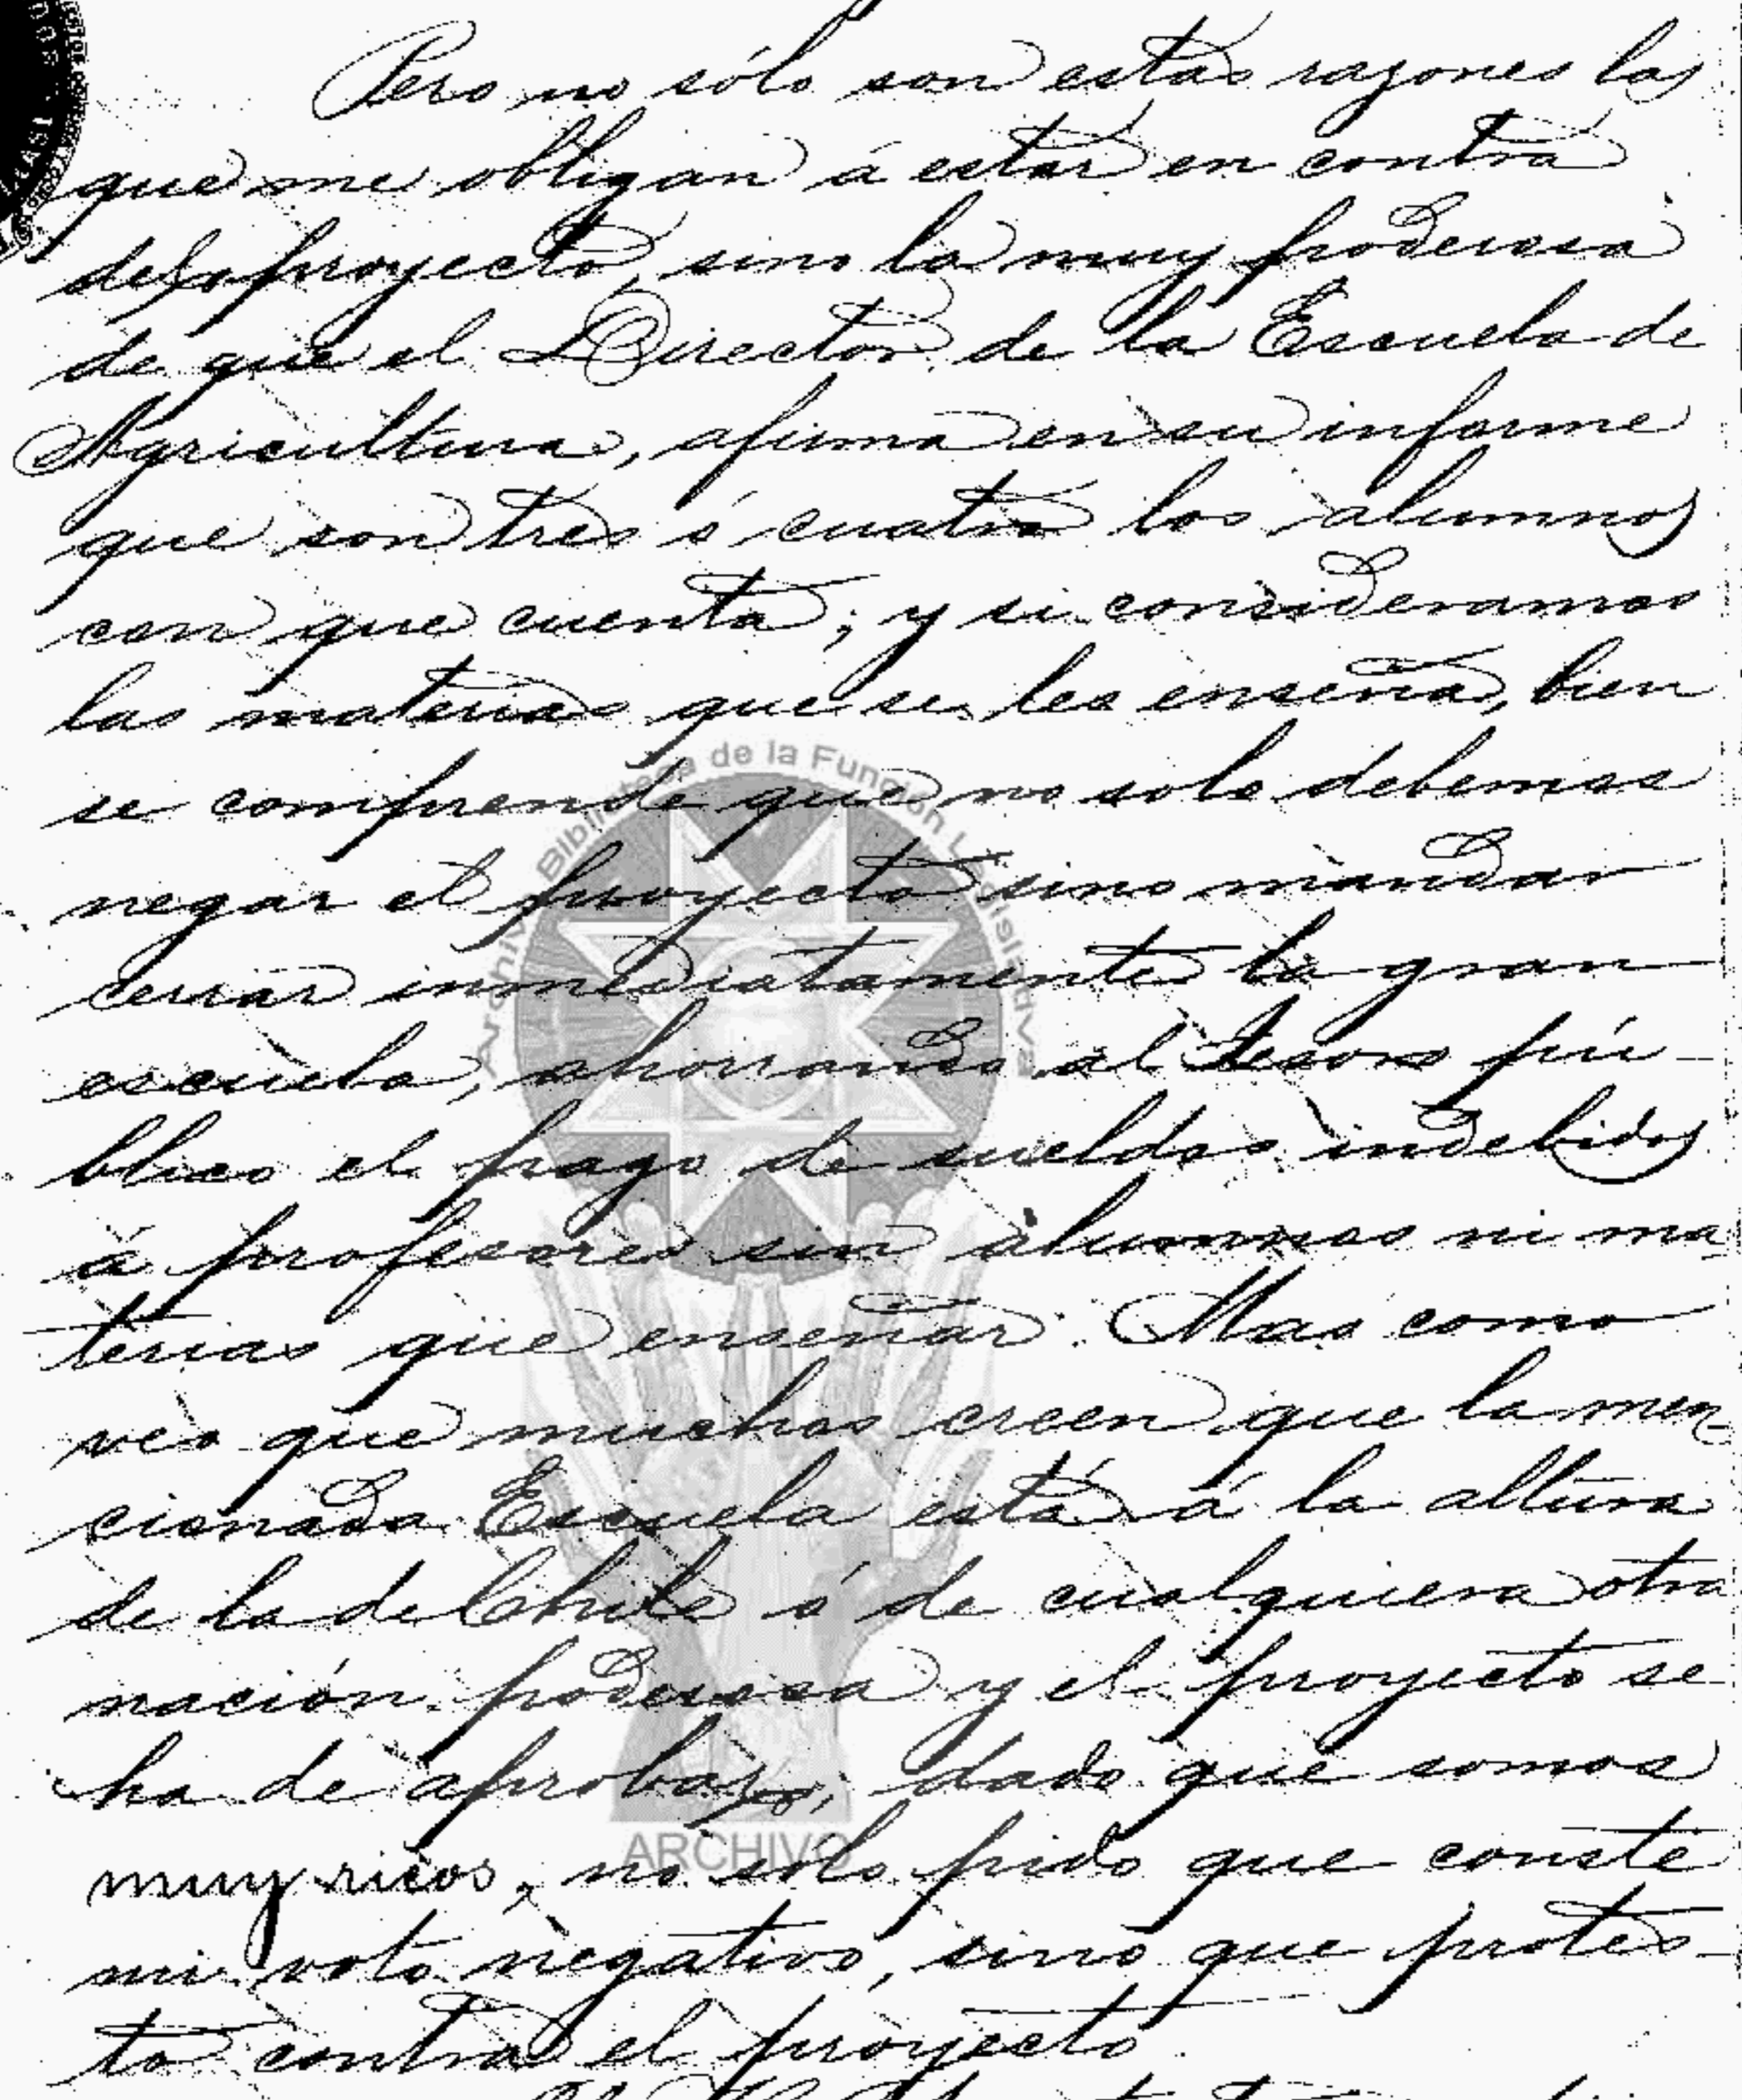 Pero no sólo son estas razones las
que me obligan á estar en contra
del proyecto, sino la muy poderosa
de que el Director de la Escuela de
Agricultura, afirma en su informe
que son tres ó cuatro los alumnos
con que cuenta; y si consideramos
las materias que se les enseña, bien
se comprende que no solo debemos
negar el proyecto sino mandar
cerrar inmediatamente la gran
escuela, ahorrando al tesoro pú-
blico el pago de sueldos indebidos
á profesores sin alumnos ni ma
terias que enseñar. Mas como
veo que muchos creen que la men-
cionada Escuela está á la altura
de la de Chile ó de cualquiera otra
nación poderosa y el proyecto se
ha de aprobar, dado que somos
muy ricos, no sólo pido que conste
mi voto negativo, sino que protes-
to contra el proyecto.
Archivo Biblioteca de la Función Legislativa
ARCHIVO